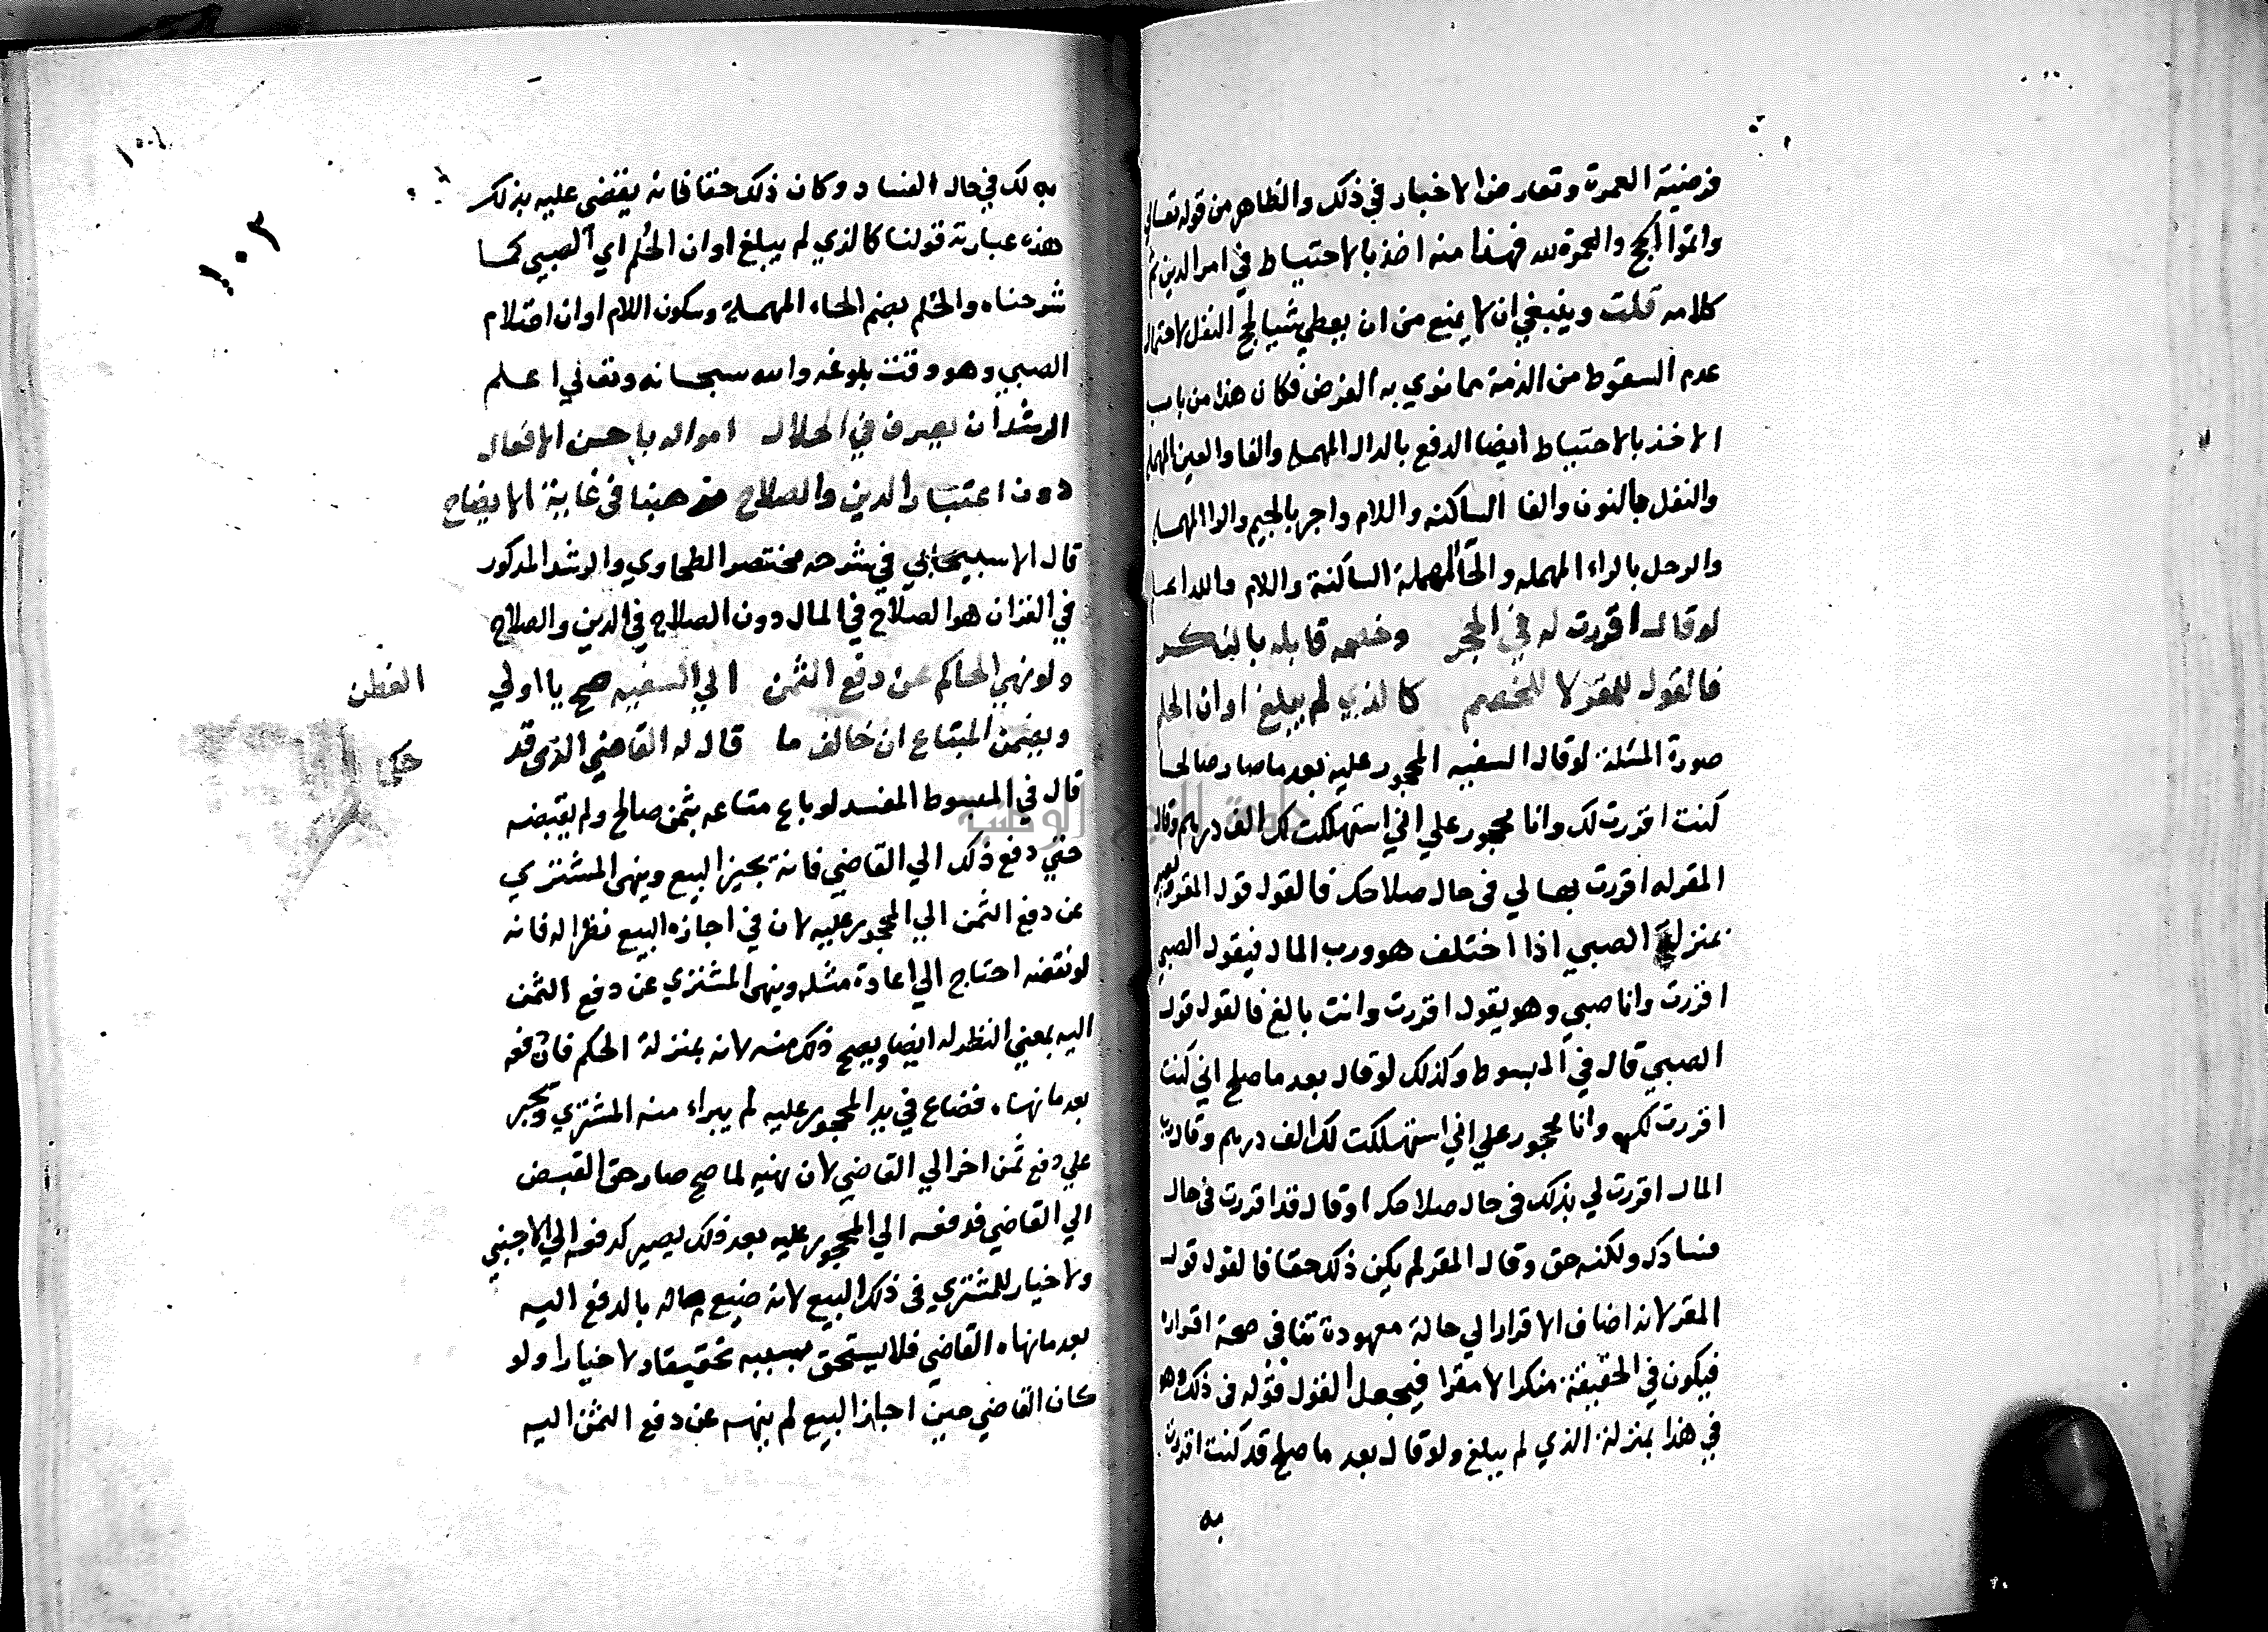 فرضية العمرة وتعارض الاخبار في ذلك والظاهر من قوله تعالي
واتموا الحج والعمرة لله فهذا منه اخذ بالاحتياط في امر الدين تم
كلامه قلت وينبغي ان لا يمنع من ان يعطي شيا لحج النفل لاحتمال
عدم السقوط من الذمة بما نوي به الفرض فكان هذا من باب
الاخذ بالاحتياط ايضا الدفع بالدال المهمله والفا والعين المهمله
والنفل بالنون والفا الساكنه واللام واجر بالجيم والرا المهمله
والرحل بالراء المهمله والحا المهملة الساكنة واللام والله اعلم
لو قال اقررت له في الحجر وخصمه قابله بالنكر
فالقول للمقر لا للخصم كالذي لم يبلغ اوان الحلم
صورة المسئلة لو قال السفيه المحجور عليه بعد ما صار صالحا
كنت اقررت لك وانا محجور علي اني استهلكت لك الف درهم وقال
المقر له اقررت بها لي في حال صلاحك فالقول قول المقر لانه
بمنزلة الصبي اذا اختلف هو ورب المال فيقول الصبي
اقررت وانا صبي وهو يقول اقررت وانت بالغ فالقول قول
الصبي قال في المبسوط وكذلك لو قال بعد ما صلح اني كنت
اقررت لك وانا محجور علي اني استهلكت لك الف درهم وقال رب
المال اقررت لي بذلك في حال صلاحك او قال قد اقررت في حال
فسادك ولكنه حق وقال المقر لم يكن ذلك حقا فالقول قول
المقر لانه اضاف الاقرار الي حالة معهودة تنافي صحة اقراره
فيكون في الحقيقة منكرا لا مقرا فيجعل القول قوله في ذلك وهو
في هذا بمنزلة الذي لم يبلغ ولو قال بعد ما صلح قد كنت اقررت
به
١٠٣
به لك في حال الفساد وكان ذلك حقا فانه يقضي عليه بذلك
هذه عبارته قولنا كالذي لم يبلغ اوان الحُلم اي الصبي كما
شرحناه والحُلم بضم الحاء المهملة وسكون اللام اوان احتلام
الصبي وهو وقت بلوغه والله سبحانه وتعالي اعلم
الرشد ان يصرف في الحلال امواله باحسن الافعال
دون اعتبار الدين والصلاح مذهبنا في غاية الايضاح
قال الاسبيجابي في شرحه مختصر الطحاوي والرشد المذكور
في القران هو الصلاح في المال دون الصلاح في الدين والصلاح
ولو نهي الحاكم عن دفع الثمن الي السفيه صح يا اولي الفطن
ويضمن المبتاع ان خالف ما قال له القاضي الذي قد حكي
قال في المبسوط المفسد لو باع متاعه بثمن صالح ولم يقبضه
حتي دفع ذلك الي القاضي فانه يجيز البيع وينهي المشتري
عن دفع الثمن الي المحجور عليه لان في اجازه البيع نظرا له فانه
لو نقضه احتاج الي اعادة مثله وينهي المشتري عن دفع الثمن
اليه بمعني النظر له ايضا ويصح ذلك منه لانه بمنزلة الحكم فان دفعه
بعد ما نهاه فضاع في يد المحجور عليه لم يبراء منه المشتري ويجبر
علي دفع ثمن اخر الي القاضي لان نهيه لما صح صار حق القبض
الي القاضي فدفعه الي المحجور عليه بعد ذلك يصير كدفعه الي الاجنبي
ولا خيار للمشتري في ذلك البيع لانه ضيع ماله بالدفع اليه
بعد ما نهاه القاضي فلا يستحق بسببه تخفيفا ولا خيارا ولو
كان القاضي حين اجاز البيع لم ينهه عن دفع الثمن اليه